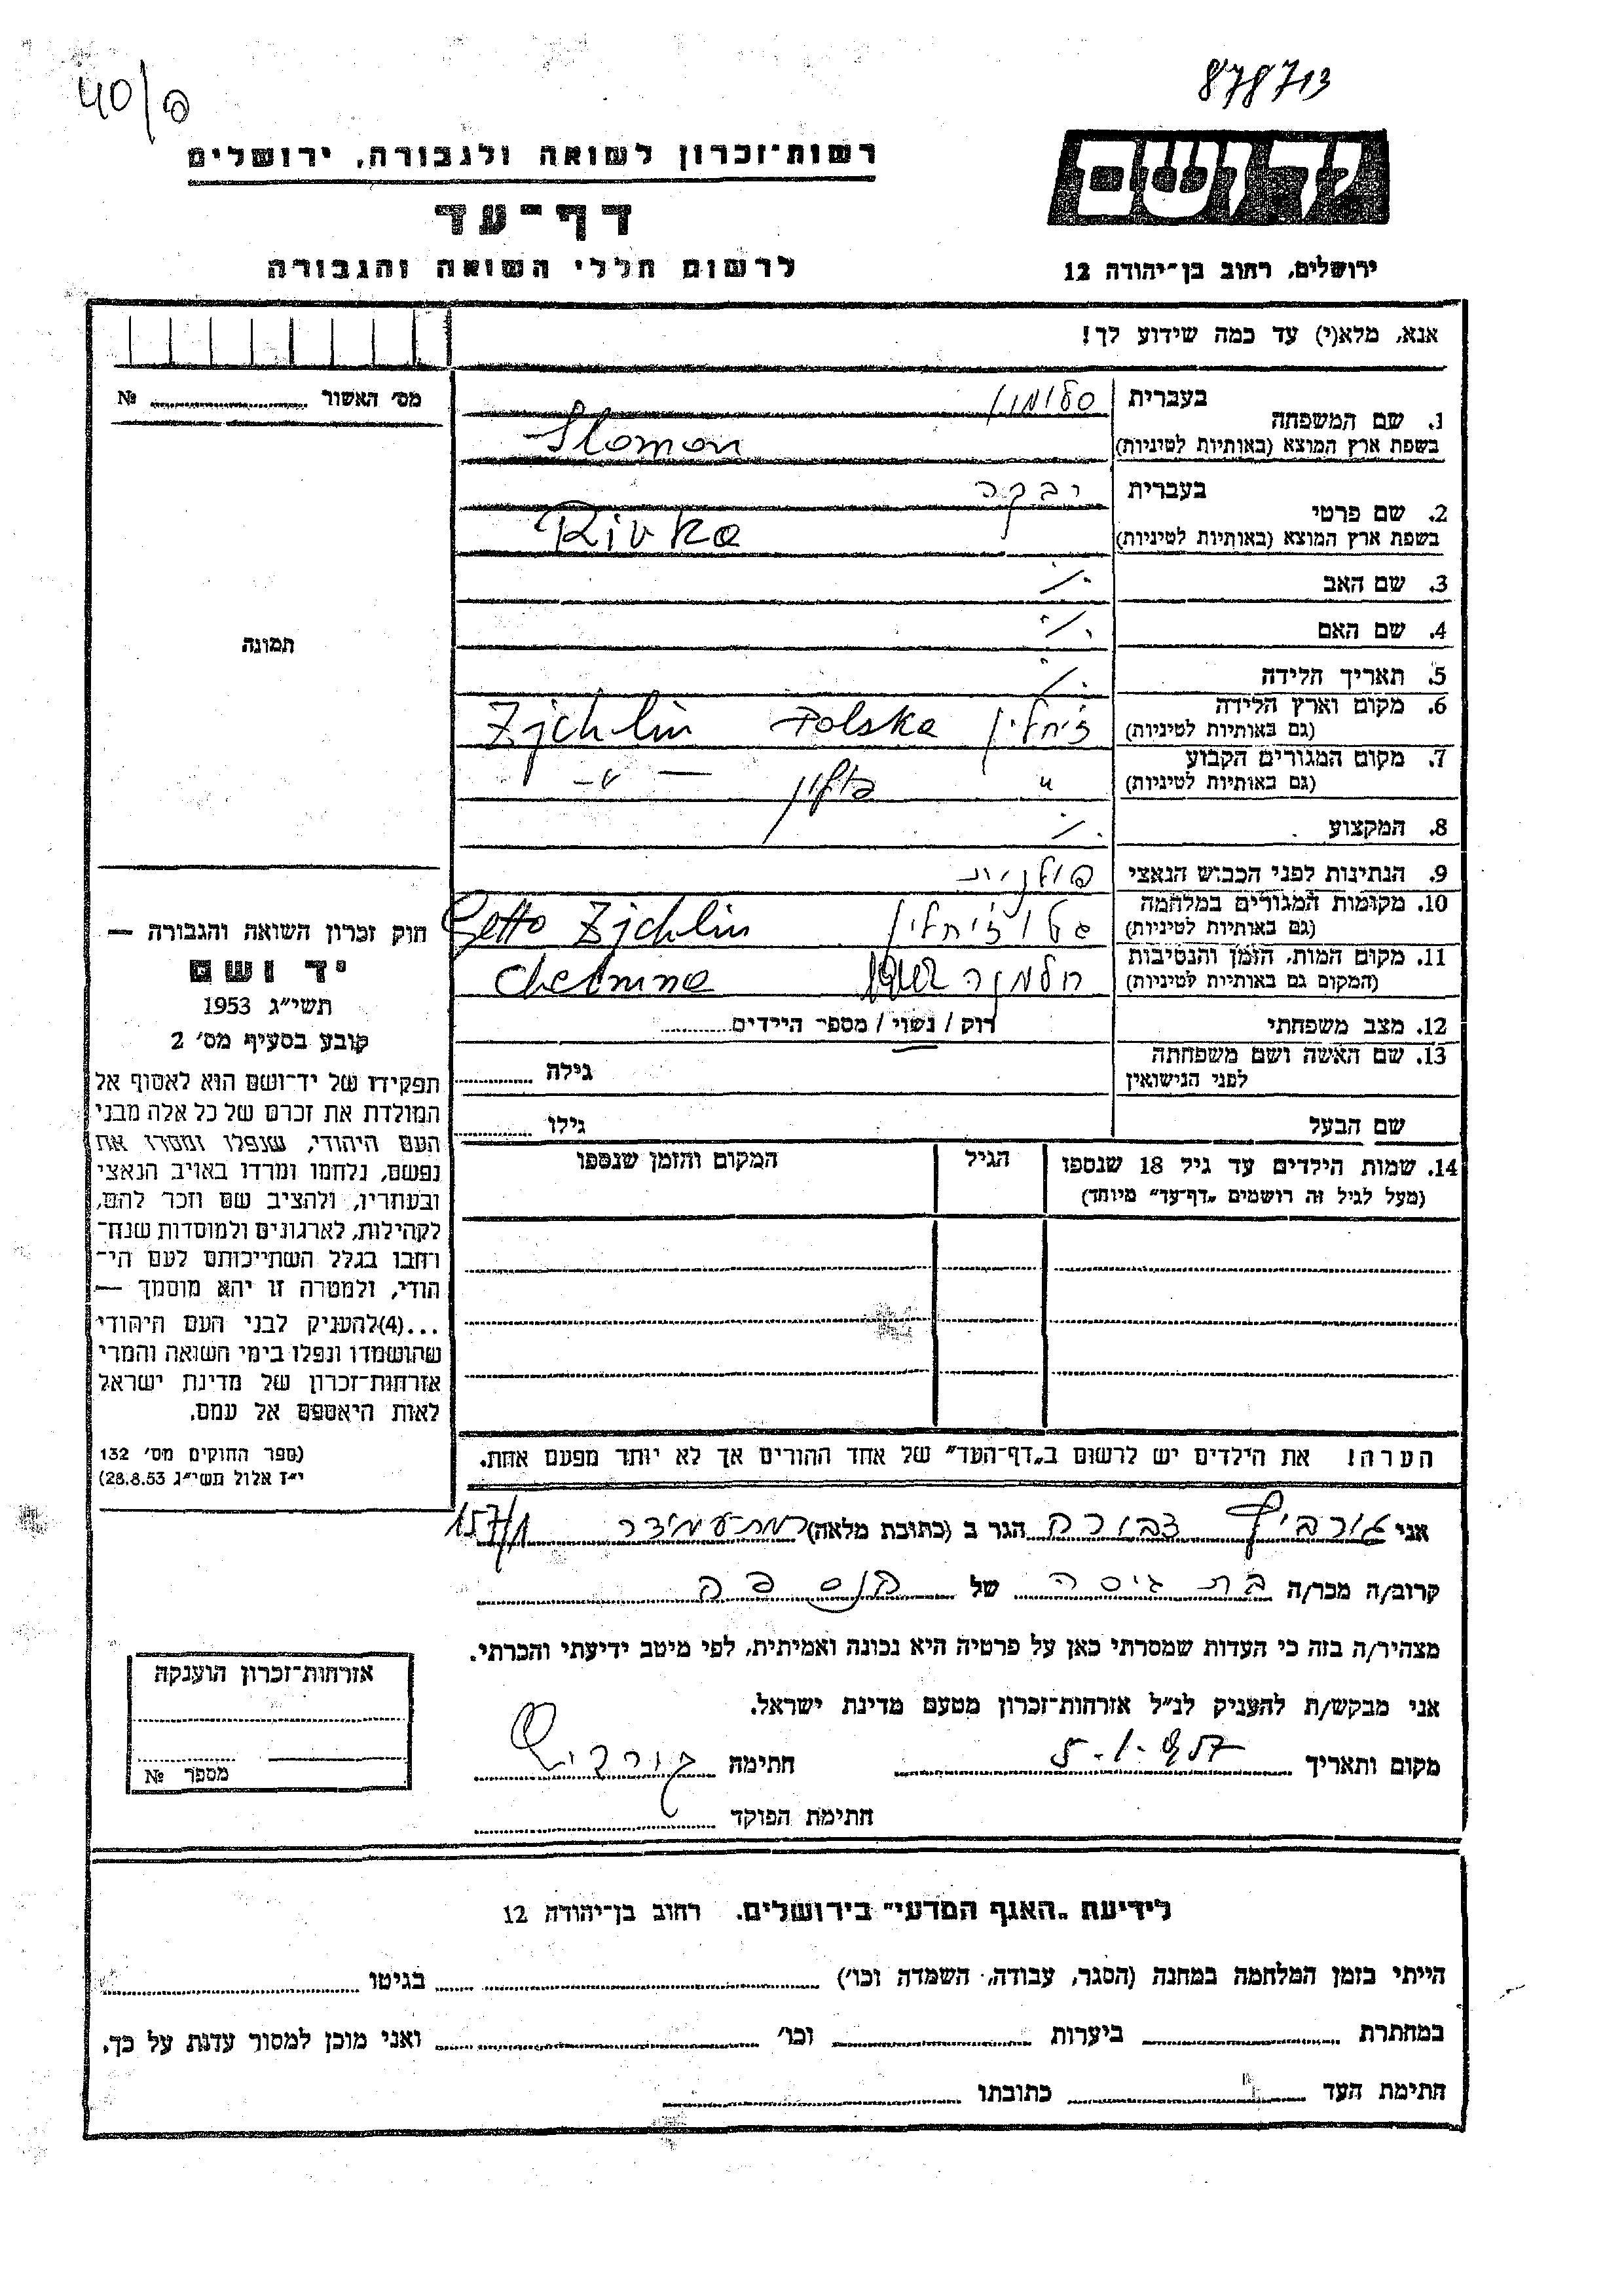 878713
40/פ
רשות־זכרון לשואה ולגבורה, ירושלים
יד ושם
דף־עד
לרשום חללי השואה והגבורה
ירושלים, רחוב בן־יהודה 12
אנא, מלא(י) עד כמה שידוע לך!
מס׳ האשור № 
1. שם המשפחה בעברית סלומון
בשפת ארץ המוצא (באותיות לטיניות) Slomon
2. שם פרטי בעברית רבקה
בשפת ארץ המוצא (באותיות לטיניות) Rivka
3. שם האב ./.
4. שם האם ./.
תמונה
5. תאריך הלידה ./.
6. מקום וארץ הלידה
(גם באותיות לטיניות) ז׳יחלין Polska Zjchlin
7. מקום המגורים הקבוע
(גם באותיות לטיניות) " פולין — " —
8. המקצוע ./.
9. הנתינות לפני הכבוש הנאצי פולנית
10. מקומות המגורים במלחמה
(גם באותיות לטיניות) גטו ז׳יחלין Getto Zjchlin
11. מקום המות, הזמן והנסיבות
(המקום גם באותיות לטיניות) חלמנה Chelmno
12. מצב משפחתי רוק / נשוי / מספר הילדים
13. שם האשה ושם משפחתה
לפני הנישואין גילה
שם הבעל גילו
14. שמות הילדים עד גיל 18 שנספו הגיל המקום והזמן שנספו
(מעל לגיל זה רושמים „דף־עד״ מיוחד)
חוק זכרון השואה והגבורה —
יד ושם
תשי״ג 1953
קובע בסעיף מס׳ 2
תפקידו של יד־ושם הוא לאסוף אל
המולדת את זכרם של כל אלה מבני
העם היהודי, שנפלו ומסרו את
נפשם, נלחמו ומרדו באויב הנאצי
ובעוזריו, ולהציב שם וזכר להם,
לקהילות, לארגונים ולמוסדות שנח־
רבו בגלל השתייכותם לעם הי־
הודי, ולמטרה זו יהא מוסמך —
...(4)להעניק לבני העם היהודי
שהושמדו ונפלו בימי השואה והמרי
אזרחות־זכרון של מדינת ישראל
לאות היאספם אל עמם.
(ספר החוקים מס׳ 132
י״ז אלול תשי״ג 28.8.53)
הערה! את הילדים יש לרשום ב„דף־העד״ של אחד ההורים אך לא יותר מפעם אחת.
אני גורביץ דבורה הגר ב (כתובת מלאה) רמת עמידר 157/1
קרוב/ה מכר/ה בת גיסה של הנספה
מצהיר/ה בזה כי העדות שמסרתי כאן על פרטיה היא נכונה ואמיתית, לפי מיטב ידיעתי והכרתי.
אני מבקש/ת להעניק לנ״ל אזרחות־זכרון מטעם מדינת ישראל.
מקום ותאריך 5.1.957 חתימה גורביץ
חתימת הפוקד
אזרחות־זכרון הוענקה
מספר №
לידיעת „האגף המדעי״ בירושלים. רחוב בן־יהודה 12
הייתי בזמן המלחמה במחנה (הסגר, עבודה, השמדה וכו׳) בגיטו
במחתרת ביערות וכו׳ ואני מוכן למסור עדות על כך.
חתימת העד כתובתו